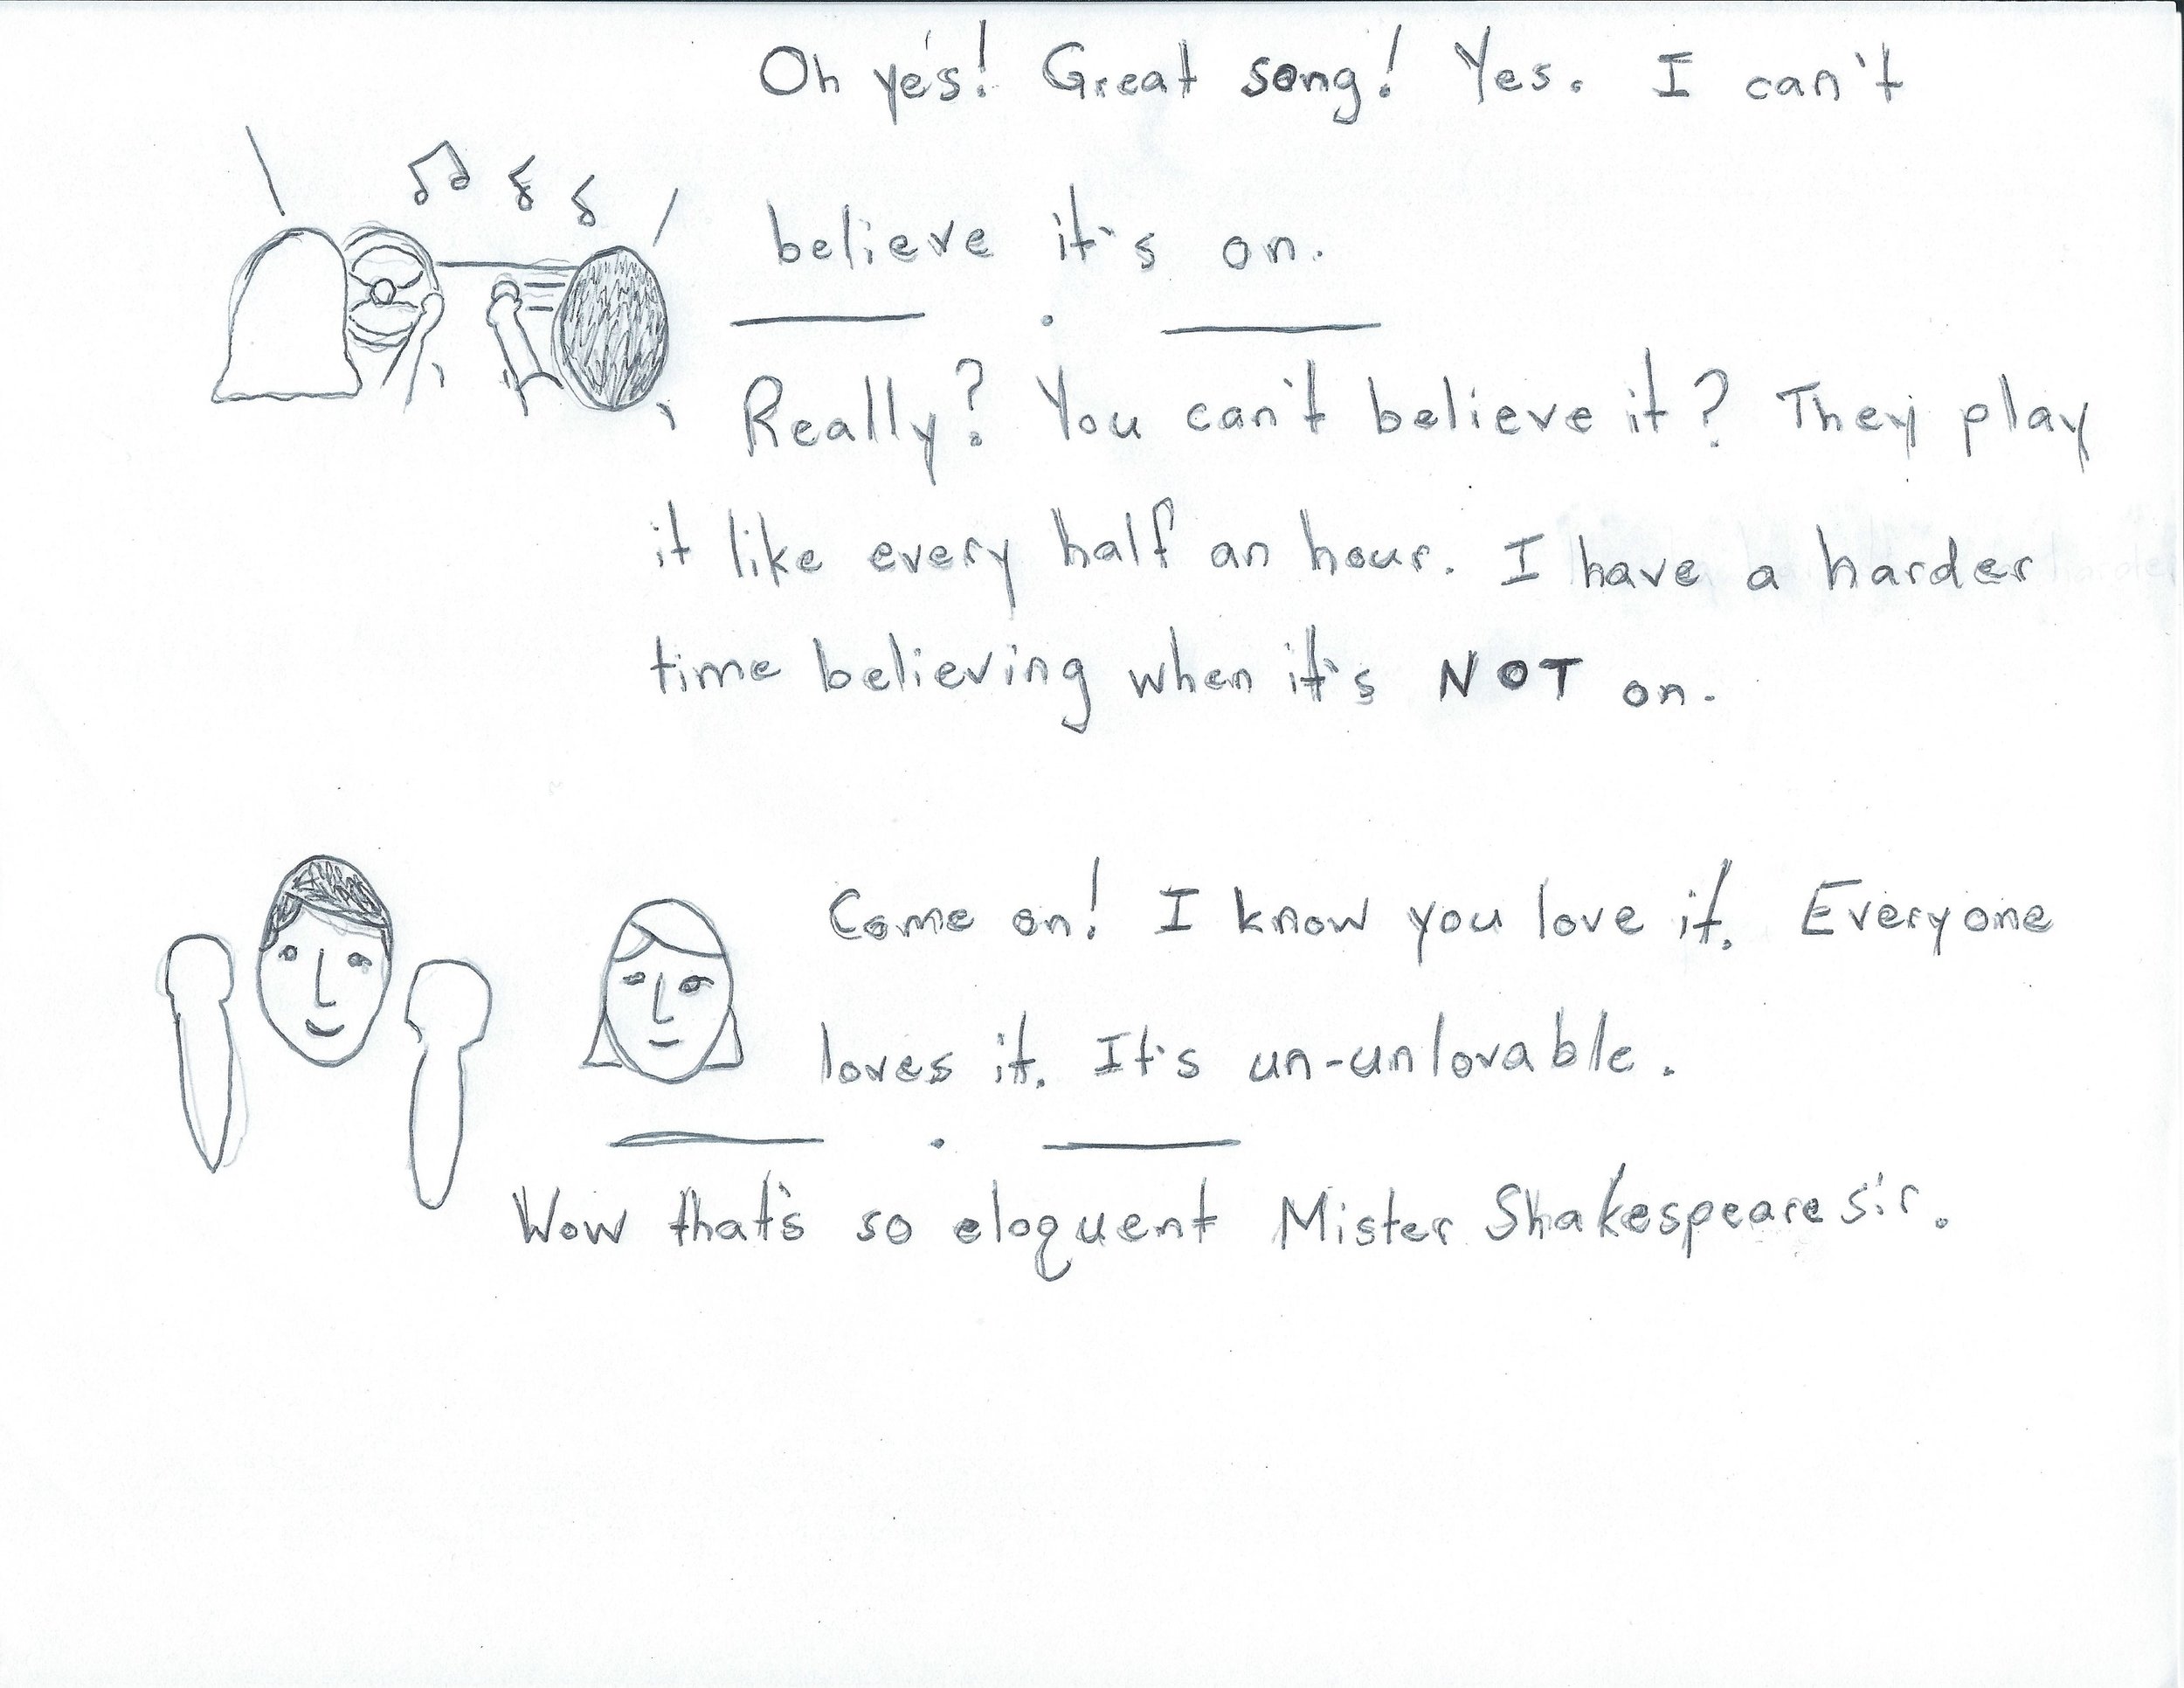 Oh yes! Great song! Yes. I can't
believe it's on.
Really? You can't believe it? They play
it like every half an hour. I have a harder
time believing when it's NOT on.
Come on! I know you love it. Everyone
loves it. It's un-unlovable.
Wow that's so eloquent Mister Shakespeare sir.